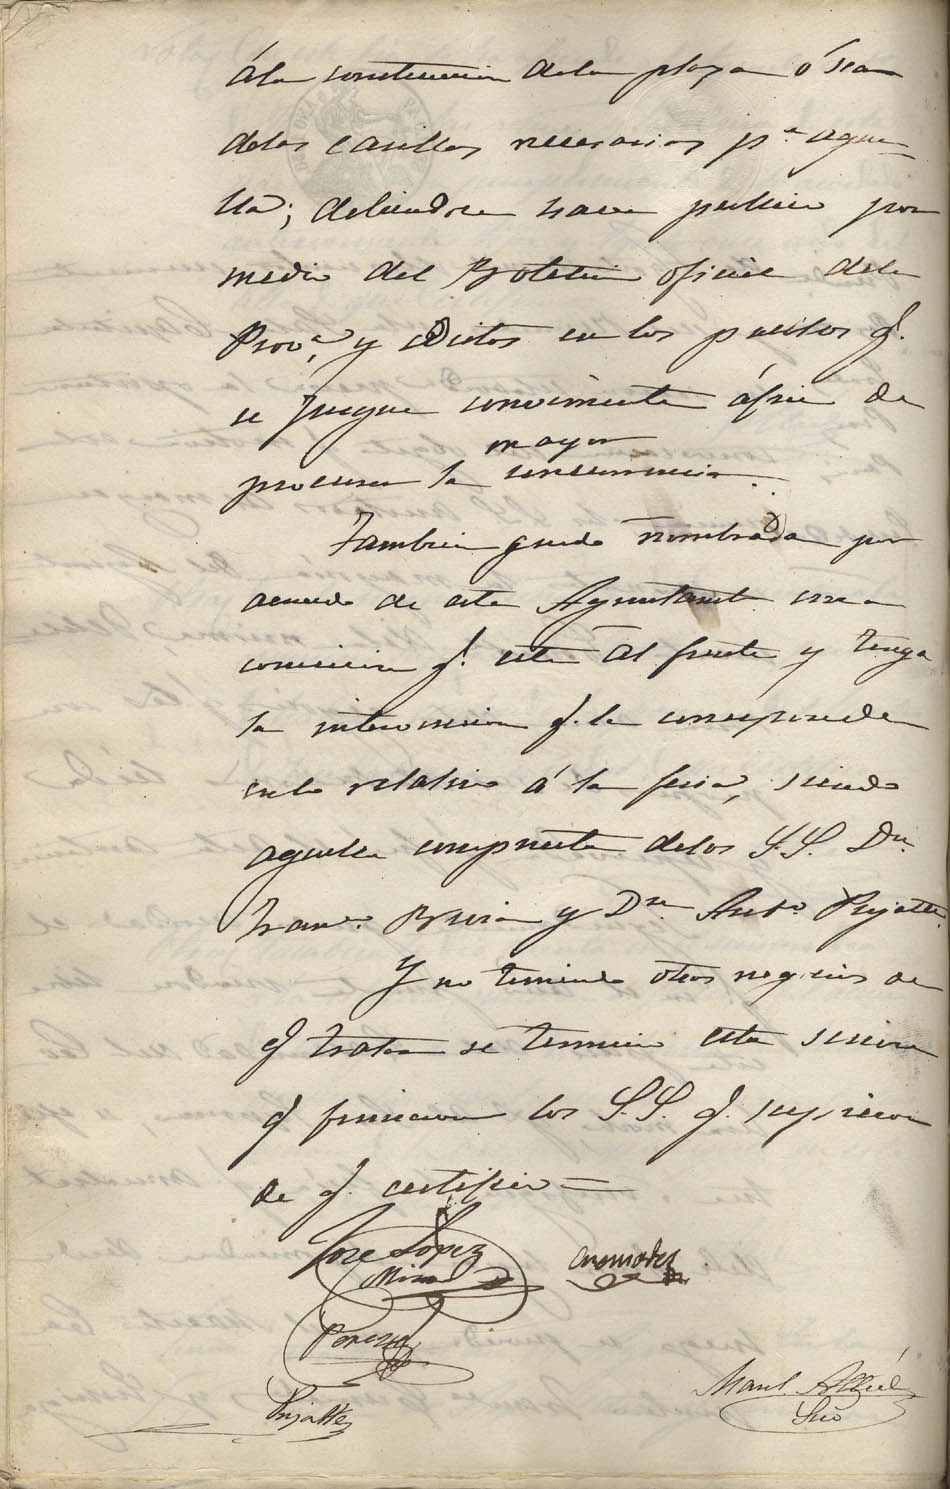 á la construccion dela plaza ó sea
delas casillas necesarias p.ª aque-
lla; debiendose hacer publico por
medio del Boletin oficial dela
Prov.ª y edictos en los pueblos q.
se juzgue conveniente áfin de
procurar la mayor concurrencia.
Tambien queda nombrada por
acuerdo de este Ayuntamt.º una
comision q. esté al frente y tenga
la intervencion q. le corresponde
enlo relativo á la feria, siendo
aquella compuesta delos S.S. Dn.
Fran.co y Dn. Ant.º Pujalte.
Y no teniendo otros negocios de
q tratar se termino esta sesion
q firmaron los S.S. q. supieron
de q. certifico=
Jose Lopez
Cremades
Mira
Perez
Pujalte
Manl.
Srio